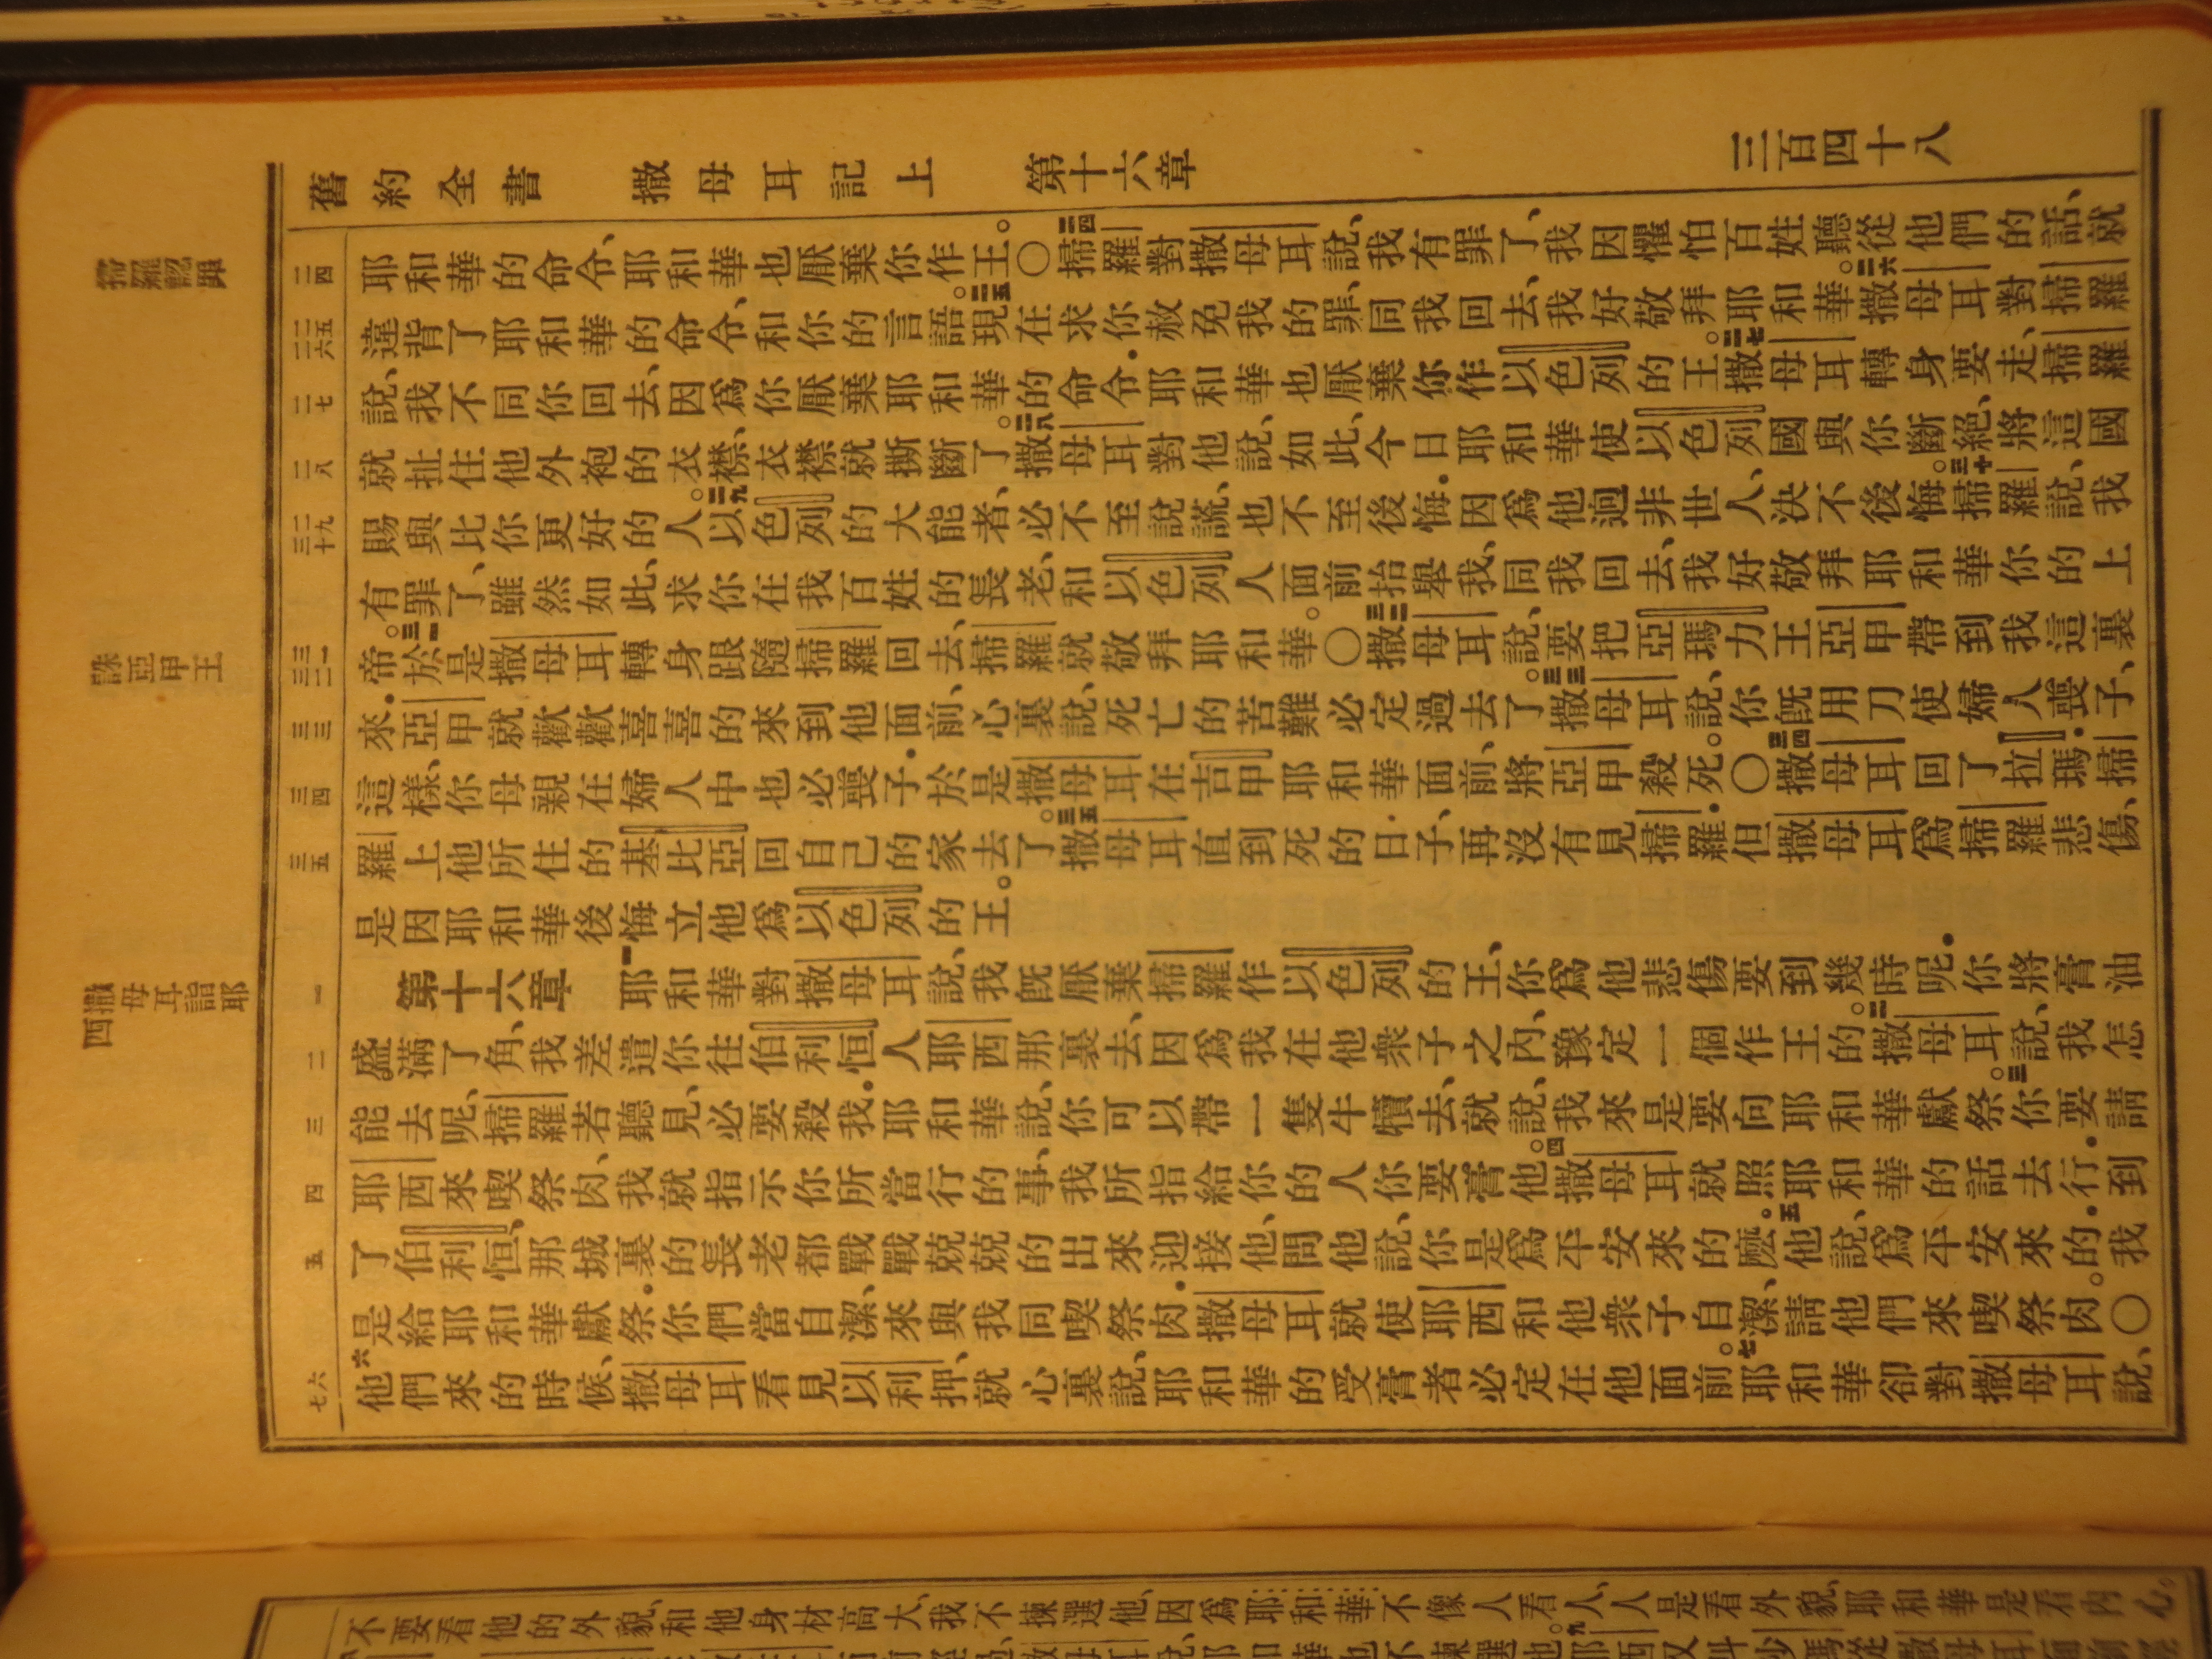 舊約全書 撒母耳記上 第十六章 三百四十八
掃羅認罪
二四
耶和華的命令、耶和華也厭棄你作王。〇二四掃羅對撒母耳說、我有罪了、我因懼怕百姓聽從他們的話、就
二五 二六
違背了耶和華的命令、和你的言語。二五現在求你赦免我的罪、同我回去、我好敬拜耶和華。二六撒母耳對掃羅
二七
說、我不同你回去、因爲你厭棄耶和華的命令．耶和華也厭棄你作以色列的王。二七撒母耳轉身要走、掃羅
二八
就扯住他外袍的衣襟、衣襟就撕斷了。二八撒母耳對他說、如此、今日耶和華使以色列國與你斷絕、將這國
二九 三十
賜與比你更好的人。二九以色列的大能者、必不至說謊、也不至後悔．因爲他迥非世人、決不後悔。三十掃羅說、我
有罪了、雖然如此、求你在我百姓的長老、和以色列人面前抬舉我、同我回去、我好敬拜耶和華你的上
誅亞甲王
三一 三二
帝。三一於是撒母耳轉身跟隨掃羅回去、掃羅就敬拜耶和華。〇三二撒母耳說、要把亞瑪力王亞甲帶到我這裏
三三
來．亞甲就歡歡喜喜的來到他面前、心裏說、死亡的苦難必定過去了。三三撒母耳說、你旣用刀使婦人喪子、
三四
這樣、你母親在婦人中也必喪子．於是撒母耳在吉甲耶和華面前、將亞甲殺死。〇三四撒母耳回了拉瑪．掃
三五
羅上他所住的基比亞回自己的家去了。三五撒母耳直到死的日子、再沒有見掃羅．但撒母耳爲掃羅悲傷、
是因耶和華後悔立他爲以色列的王。
撒母耳詣耶西
一
第十六章 一耶和華對撒母耳說、我旣厭棄掃羅作以色列的王、你爲他悲傷要到幾時呢．你將膏油
二
盛滿了角、我差遣你往伯利恒人耶西那裏去、因爲我在他衆子之內、豫定一個作王的。二撒母耳說、我怎
三
能去呢、掃羅若聽見、必要殺我．耶和華說、你可以帶一隻牛犢去、就說、我來是要向耶和華獻祭。三你要請
四
耶西來喫祭肉、我就指示你所當行的事、我所指給你的人你要膏他。四撒母耳就照耶和華的話去行．到
五
了伯利恒、那城裏的長老都戰戰兢兢的出來迎接他、問他說、你是爲平安來的麽。五他說、爲平安來的．我
是給耶和華獻祭．你們當自潔、來與我同喫祭肉．撒母耳就使耶西和他衆子自潔、請他們來喫祭肉。〇
六 七
六他們來的時候、撒母耳看見以利押、就心裏說、耶和華的受膏者必定在他面前。七耶和華卻對撒母耳說、
不要看他的外貌、和他身材高大、我不揀選他、因爲耶和華不像人看人、人是看外貌、耶和華是看內心。